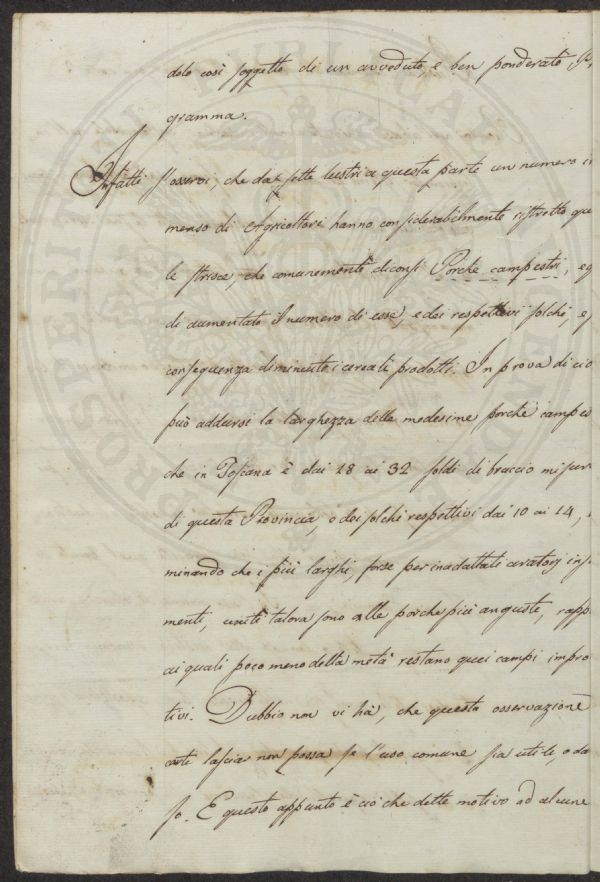 dolo così soggetto di un avveduto, e ben ponderato
gramma.
Infatti s'osservi, che da sette lustri a questa parte un numero
menso di Agricoltori hanno considerabilmente ristretto que
le strisce, che comunemente diconsi Porche campestri,
di aumentato il numero di esse, e dei respettivi solchi, e
conseguenza diminuito i cereali prodotti. In prova di ciò
può addursi la larghezza delle medesime porche campes
che in Toscana è dai 28 ai 32 soldi di braccio misur
di questa Provincia, e dei solchi respettivi dai 10 ai 14,
minando che i più larghi, forse per inadattati aratorj
menti, uniti talora sono alle porche più anguste, rapp
ai quali poco meno della metà restano quei campi impro
tivi. Dubbio non vi ha, che questa osservazione
certi lascia non possa se l'uso comune sia utile, o da
so. E questo appunto è ciò che dette motivo ad alcune